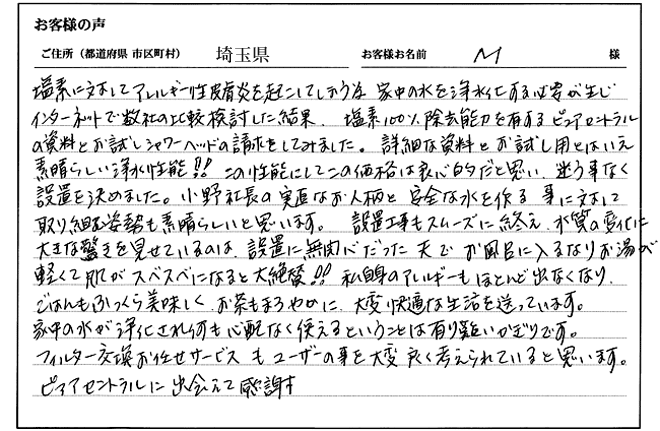 お客様の声
ご住所（都道府県 市区町村） 埼玉県 お客様お名前 M 様
塩素に対してアレルギー性皮膚炎を起こしてしまう為 家中の水を浄水化する必要が生じ
インターネットで数社の比較検討した結果、塩素100%除去能力を有するピュアセントラル
の資料とお試しシャワーヘッドの請求をしてみました。詳細な資料とお試し用とはいえ
素晴らしい浄水性能!! この性能にしてこの価格は良心的だと思い、迷う事なく
設置を決めました。小野社長の実直なお人柄と安全な水を作る事に対して
取り組む姿勢も素晴らしいと思います。設置工事もスムーズに終え、水質の変化に
大きな驚きを見せているのは、設置に無関心だった夫で お風呂に入るなりお湯が
軽くて肌がスベスベになると大絶賛!! 私自身のアレルギーもほとんど出なくなり、
ごはんもふっくら美味しく、お茶もまろやかに、大変快適な生活を送っています。
家中の水が浄化され何も心配なく使えるということは有り難いかぎりです。
フィルター交換お任せサービスもユーザーの事を大変良く考えられていると思います。
ピュアセントラルに出会えて感謝す